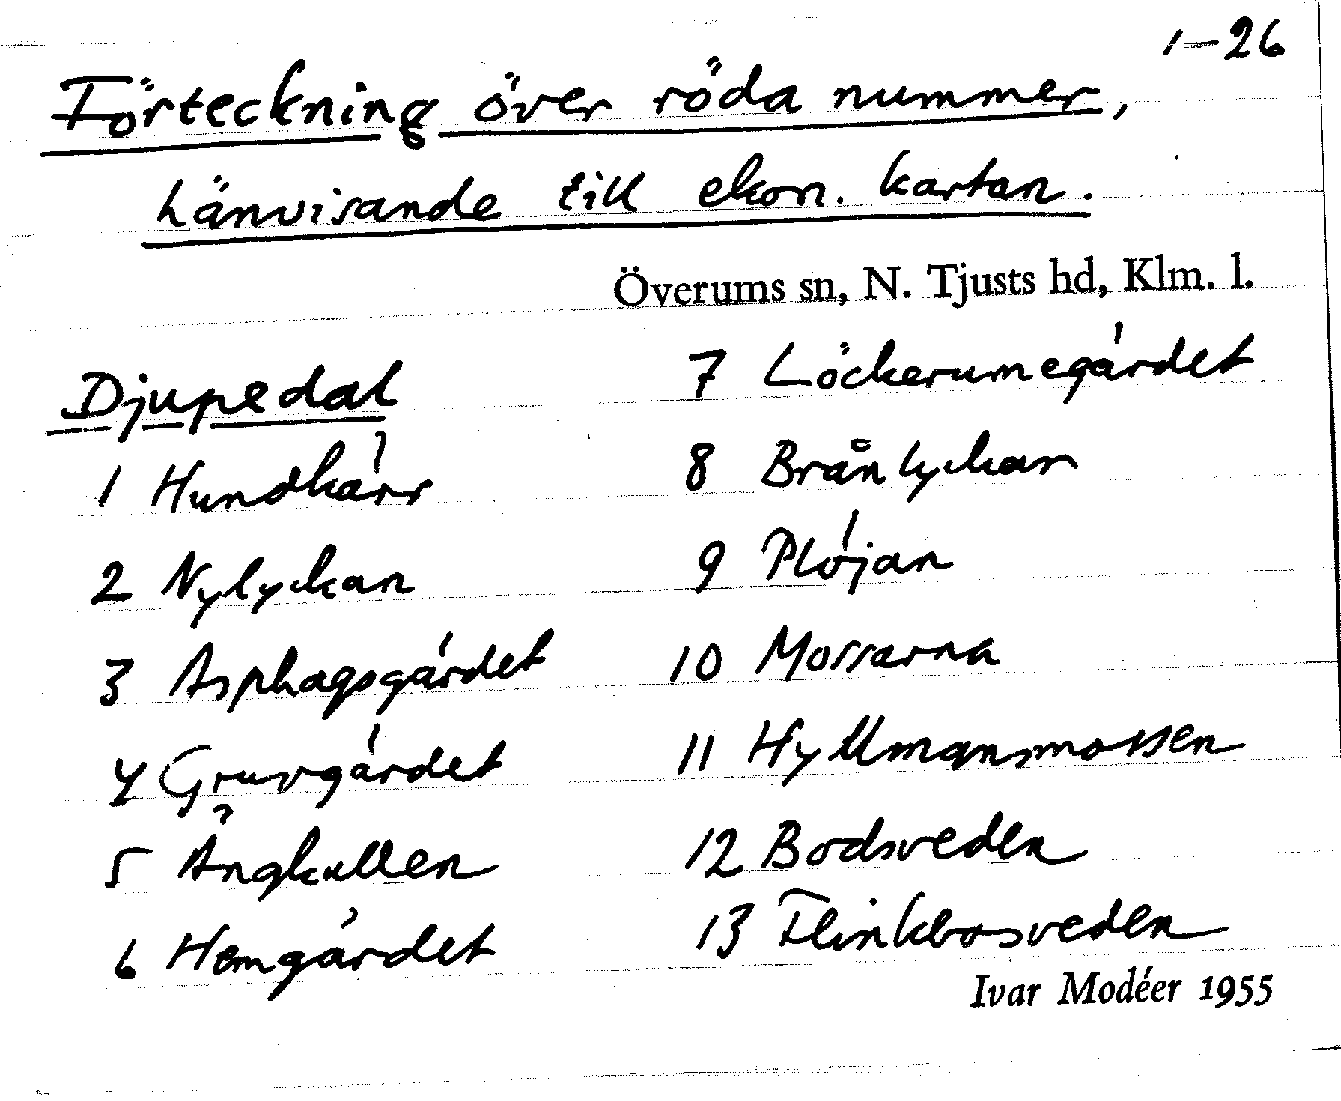 1–26
Förteckning över röda nummer,
hänvisande till ekon. kartan.
Överums sn, N. Tjusts hd, Klm. l.
Djupedal
1 Hundkärr
2 Nylyckan
3 Asphagsgärdet
4 Gruvgärdet
5 Ängkullen
6 Hemgärdet
7 Löckerumegärdet
8 Brånlyckan
9 Plöjan
10 Mossarna
11 Hyllmansmossen
12 Bodsveden
13 Flinkbosveden
Ivar Modéer 1955